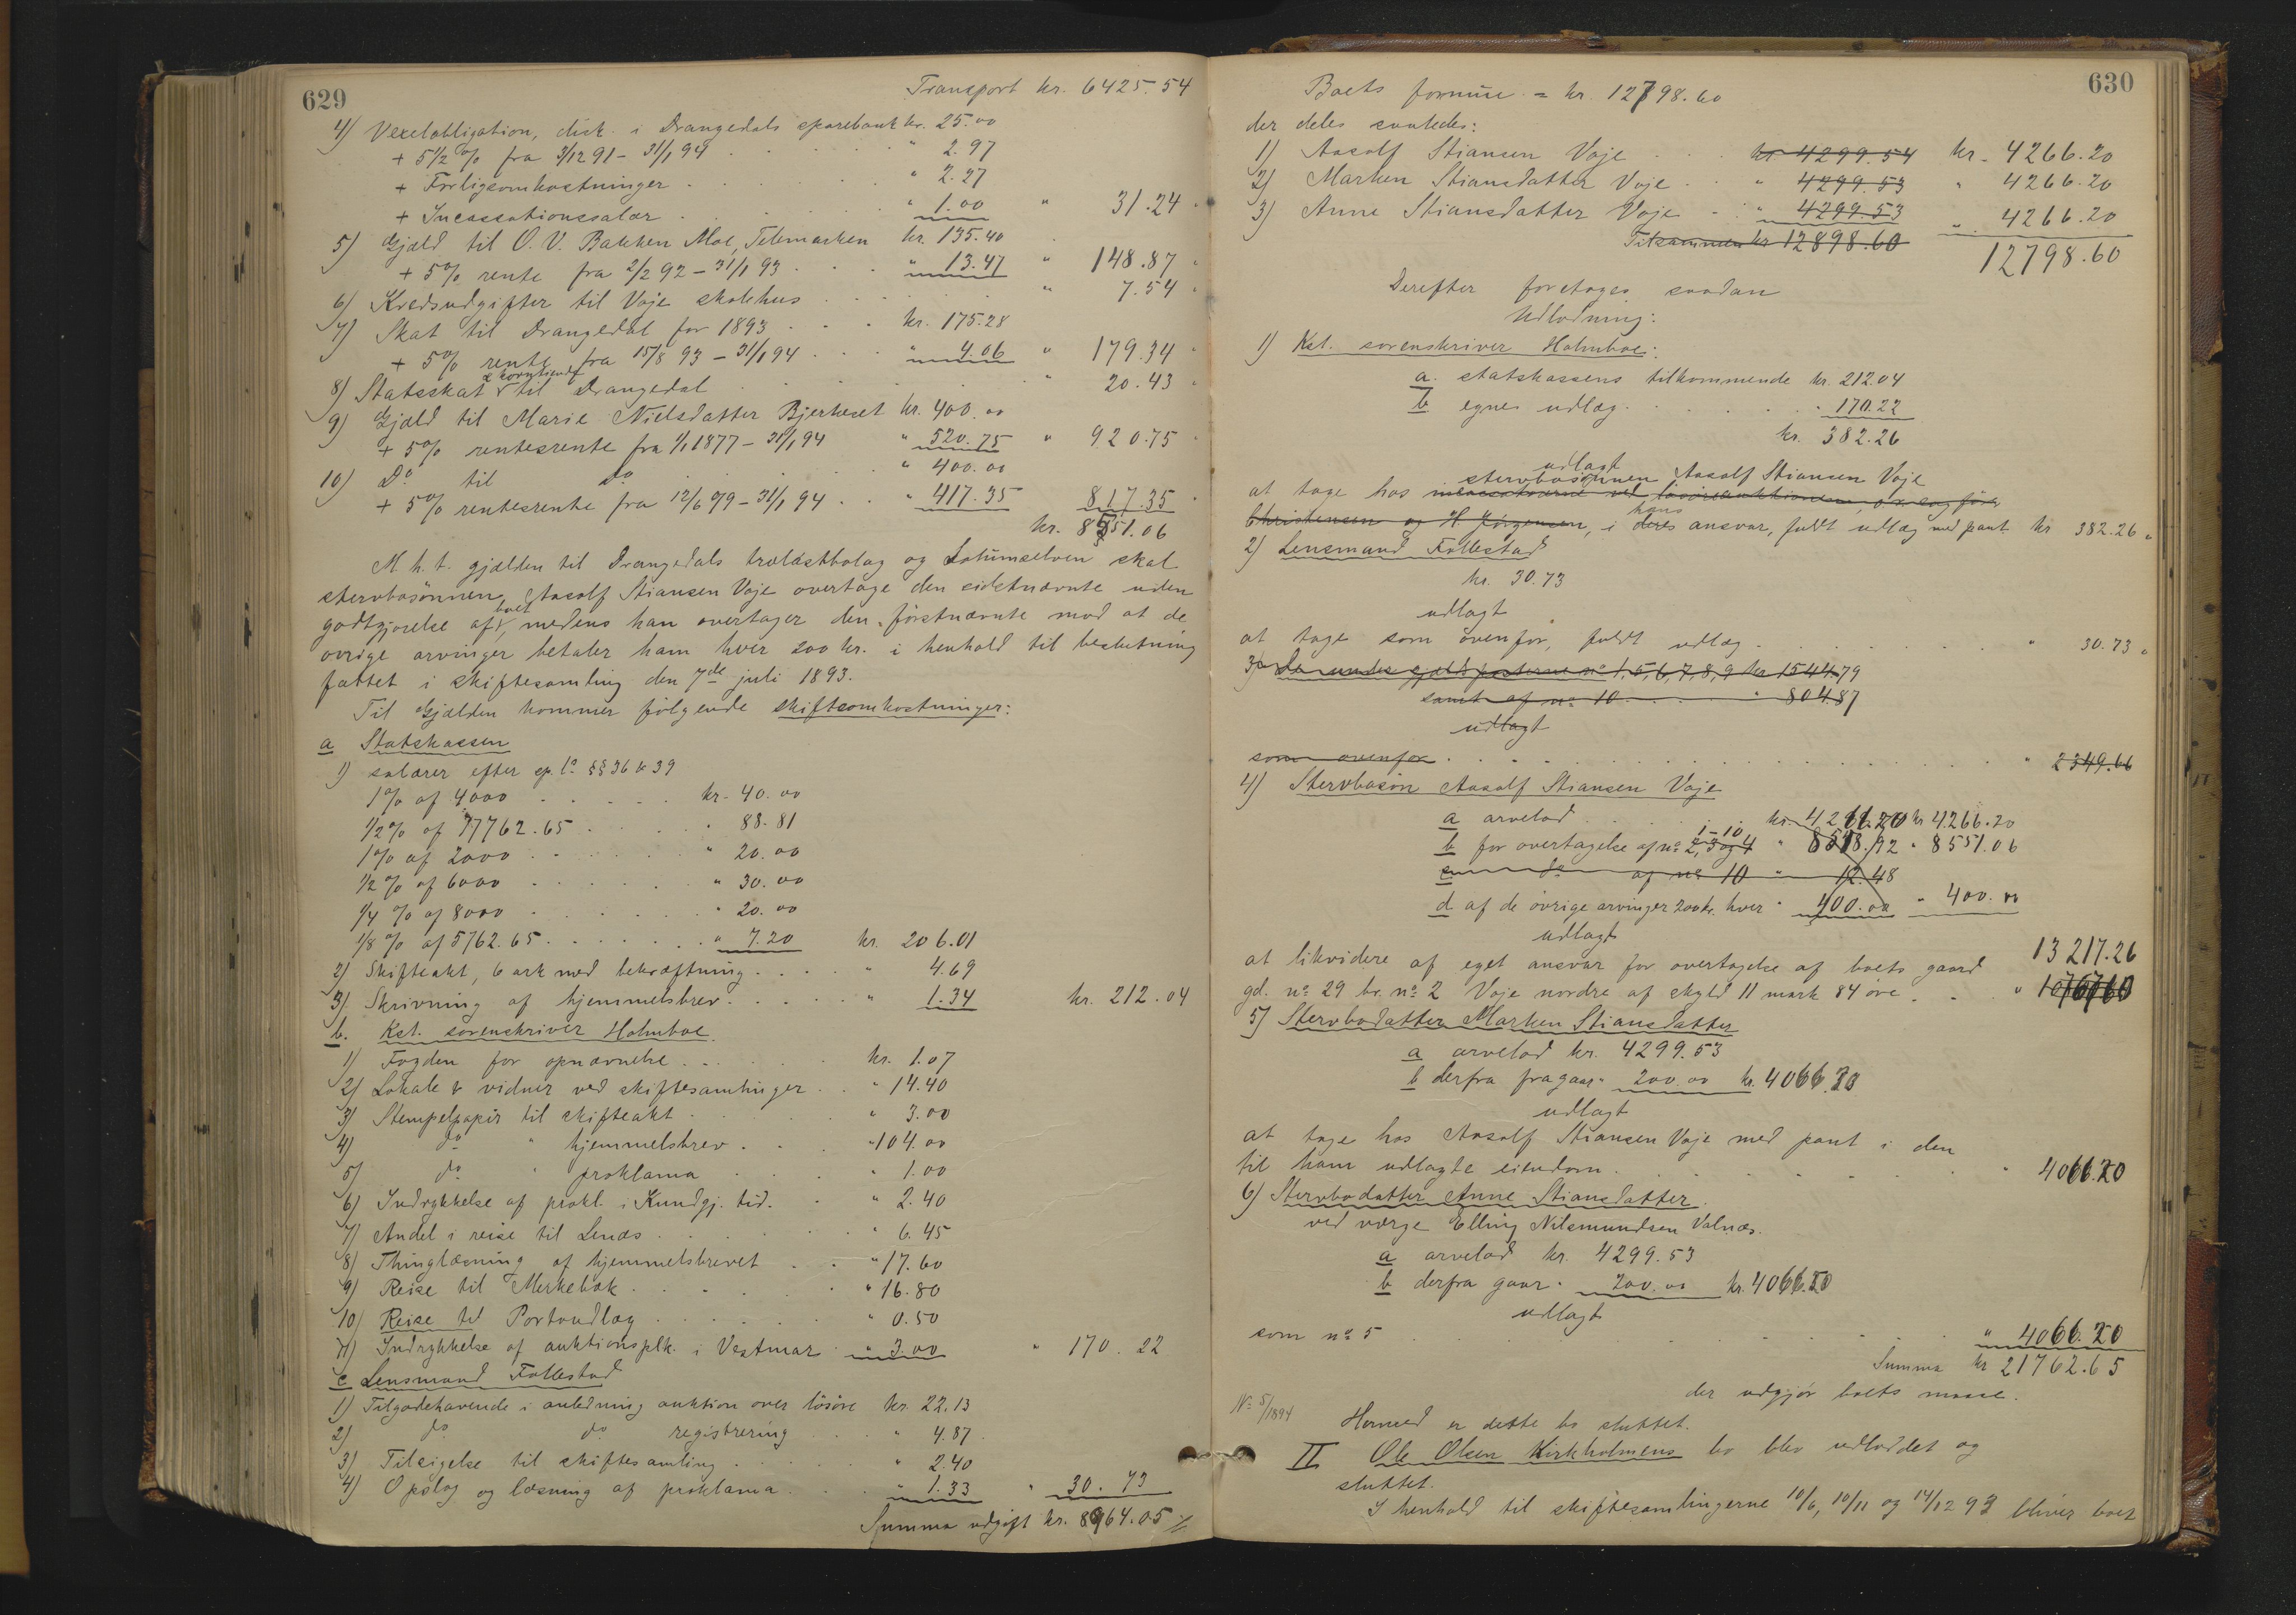 629
Transport kr. 6425.54
4) Vexelobligation, disk. i Drangedals sparebank kr. 25.00
+ 5½ % fra 3/12 91 - 31/1 94 . . . " 2.97
+ Forligsomkostninger . . . " 2.27
+ Incassationssalær . . . " 1.00 " 31.24
5) Gjæld til O. V. Bakken Moe, Telemarken kr. 135.40
+ 5% rente fra 2/2 92 - 31/1 93 . . . " 13.47 " 148.87
6) Kredsudgifter til Voje skolehus . . . " 7.54
7) Skat til Drangedal for 1893 . . . kr. 175.28
+ 5% rente fra 15/8 93 - 31/1 94 . . . " 4.06 " 179.34
8) Statsskat & korntiende til Drangedal . . . " 20.43
9) Gjæld til Marie Nielsdatter Bjerkeset kr. 400.00
+ 5% rentesrente fra 1/1 1877 - 31/1 94 " 520.75 " 920.75
10) Do til do . . . " 400.00
+ 5% rentesrente fra 12/6 79 - 31/1 94 . . " 417.35 817.35
kr. 8551.06
M. h. t. gjælden til Drangedals trælastbolag og Lotumselven skal
stervbosønnen Aasolf Stiansen Voje overtage den sidstnævnte uden
godtgjørelse af boet, medens han overtager den førstnævnte mod at de
øvrige arvinger betaler ham hver 200 kr. i henhold til beslutning
fattet i skiftesamling den 7de juli 1893.
Til Gjælden kommer følgende skifteomkostninger:
a Statskassen
1) salærer efter sp. l. §§ 36 & 39
1% af 4000 . . . kr. 40.00
½% af 17762.65 . . . " 88.81
1% af 2000 . . . " 20.00
½% af 6000 . . . " 30.00
¼% af 8000 . . . " 20.00
1/8% af 5762.65 . . . " 7.20 kr. 206.01
2) Skifteakt, 6 ark med bekræftning . . . " 4.69
3) Skrivning af hjemmelsbrev . . . " 1.34 kr. 212.04
b. Kst. sorenskriver Holmboe
1) Fogden for opnævnelse . . . kr. 1.07
2) Lokale & vidner ved skiftesamlinger . . " 14.40
3) Stempelpapir til skifteakt . . . " 3.00
4) do " hjemmelsbrev . . . " 104.00
5) do " proklama . . . " 1.00
6) Indrykkelse af prokl. i Kundgj. tid. . " 2.40
7) Andel i reise til Lenæs . . . " 6.45
8) Thinglæsning af hjemmelsbrevet . . " 17.60
9) Reise til Merkebæk . . . " 16.80
10) Reise til Portoudlæg . . . " 0.50
11) Indrykkelse af auktionsplk. i Vestmar " 3.00 " 170.22
c Lensmand Follestad
1) Tilgodehavende i anledning auktion over løsøre kr. 22.13
2) do do registrering . . . " 4.87
3) Tilsigelse til skiftesamling . . . " 2.40
4) Opslag og læsning af proklama . . . " 1.33 " 30.73
Summa udgift kr. 8964.05
630
Boets formue = kr. 12798.60
der deles saaledes:
1) Aasolf Stiansen Voje . . kr 4299.54 kr. 4266.20
2) Marken Stiansdatter Voje . . " 4299.53 " 4266.20
3) Anne Stiansdatter Voje . . " 4299.53 " 4266.20
Tilsammen kr 12898.60 12798.60
Derefter foretages saadan
Udlodning:
1) Kst. sorenskriver Holmboe:
a. statskassens tilkommende kr. 212.04
b egnes udlæg . . . " 170.22
kr. 382.26
udlagt
stervbosønnen Aasolf Stiansen Voje
at tage hos
Christensen og H. Jørgensen, i deres hans ansvar, fuldt udlæg med pant kr 382.26
2) Lensmand Follestad
kr. 30.73
udlagt
at tage som ovenfor, fuldt udlæg . . . " 30.73
3) De under gjeldsposterne no 1, 5, 6, 7, 8, 9 kr 1544.79
samt af no 10 . . . " 804.87
udlagt
som ovenfor . . . " 2349.66
4) Stervbosøn Aasolf Stiansen Voje
a arvelod . . . kr. kr 4266.20
b for overtagelse af no 2, 3 og 4 1-10 " " 8551.06
c do af no 10 " 12.48
d af de øvrige arvinger 200 kr. hver " 400.00 " 400.00
udlagt
at likvidere af eget ansvar for overtagelse af boets gaard 13217.26
gd. no 29 br. no 2 Voje nordre af skyld 11 mark 84 øre . . "
5) Stervbodatter Marken Stiansdatter
a arvelod kr. 4299.53
b derfra fragaar " 200.00 kr. 4066.20
udlagt
at tage hos Aasolf Stiansen Voje med pant i den
til ham udlagte eiendom . . . " 4066.20
6) Stervbodatter Anne Stiansdatter
ved værge Elling Nilsmundsen Valnæs.
a arvelod kr. 4299.53
b derfra gaar " 200.00 kr. 4066.20
udlagt
som no 5 . . . " 4066.20
Summa kr 21762.65
der udgjør boets masse.
No 5/1894
Hermed er dette bo sluttet.
II Ole Olsen Kirkholmens bo blev udloddet og
sluttet.
I henhold til skiftesamlingerne 10/6, 10/11 og 14/12 93 bliver boet